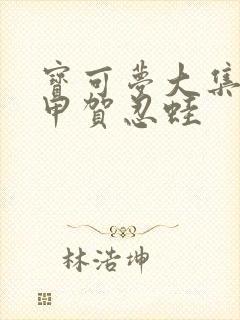 寶可夢大集
甲賀忍蛙
林浩坤